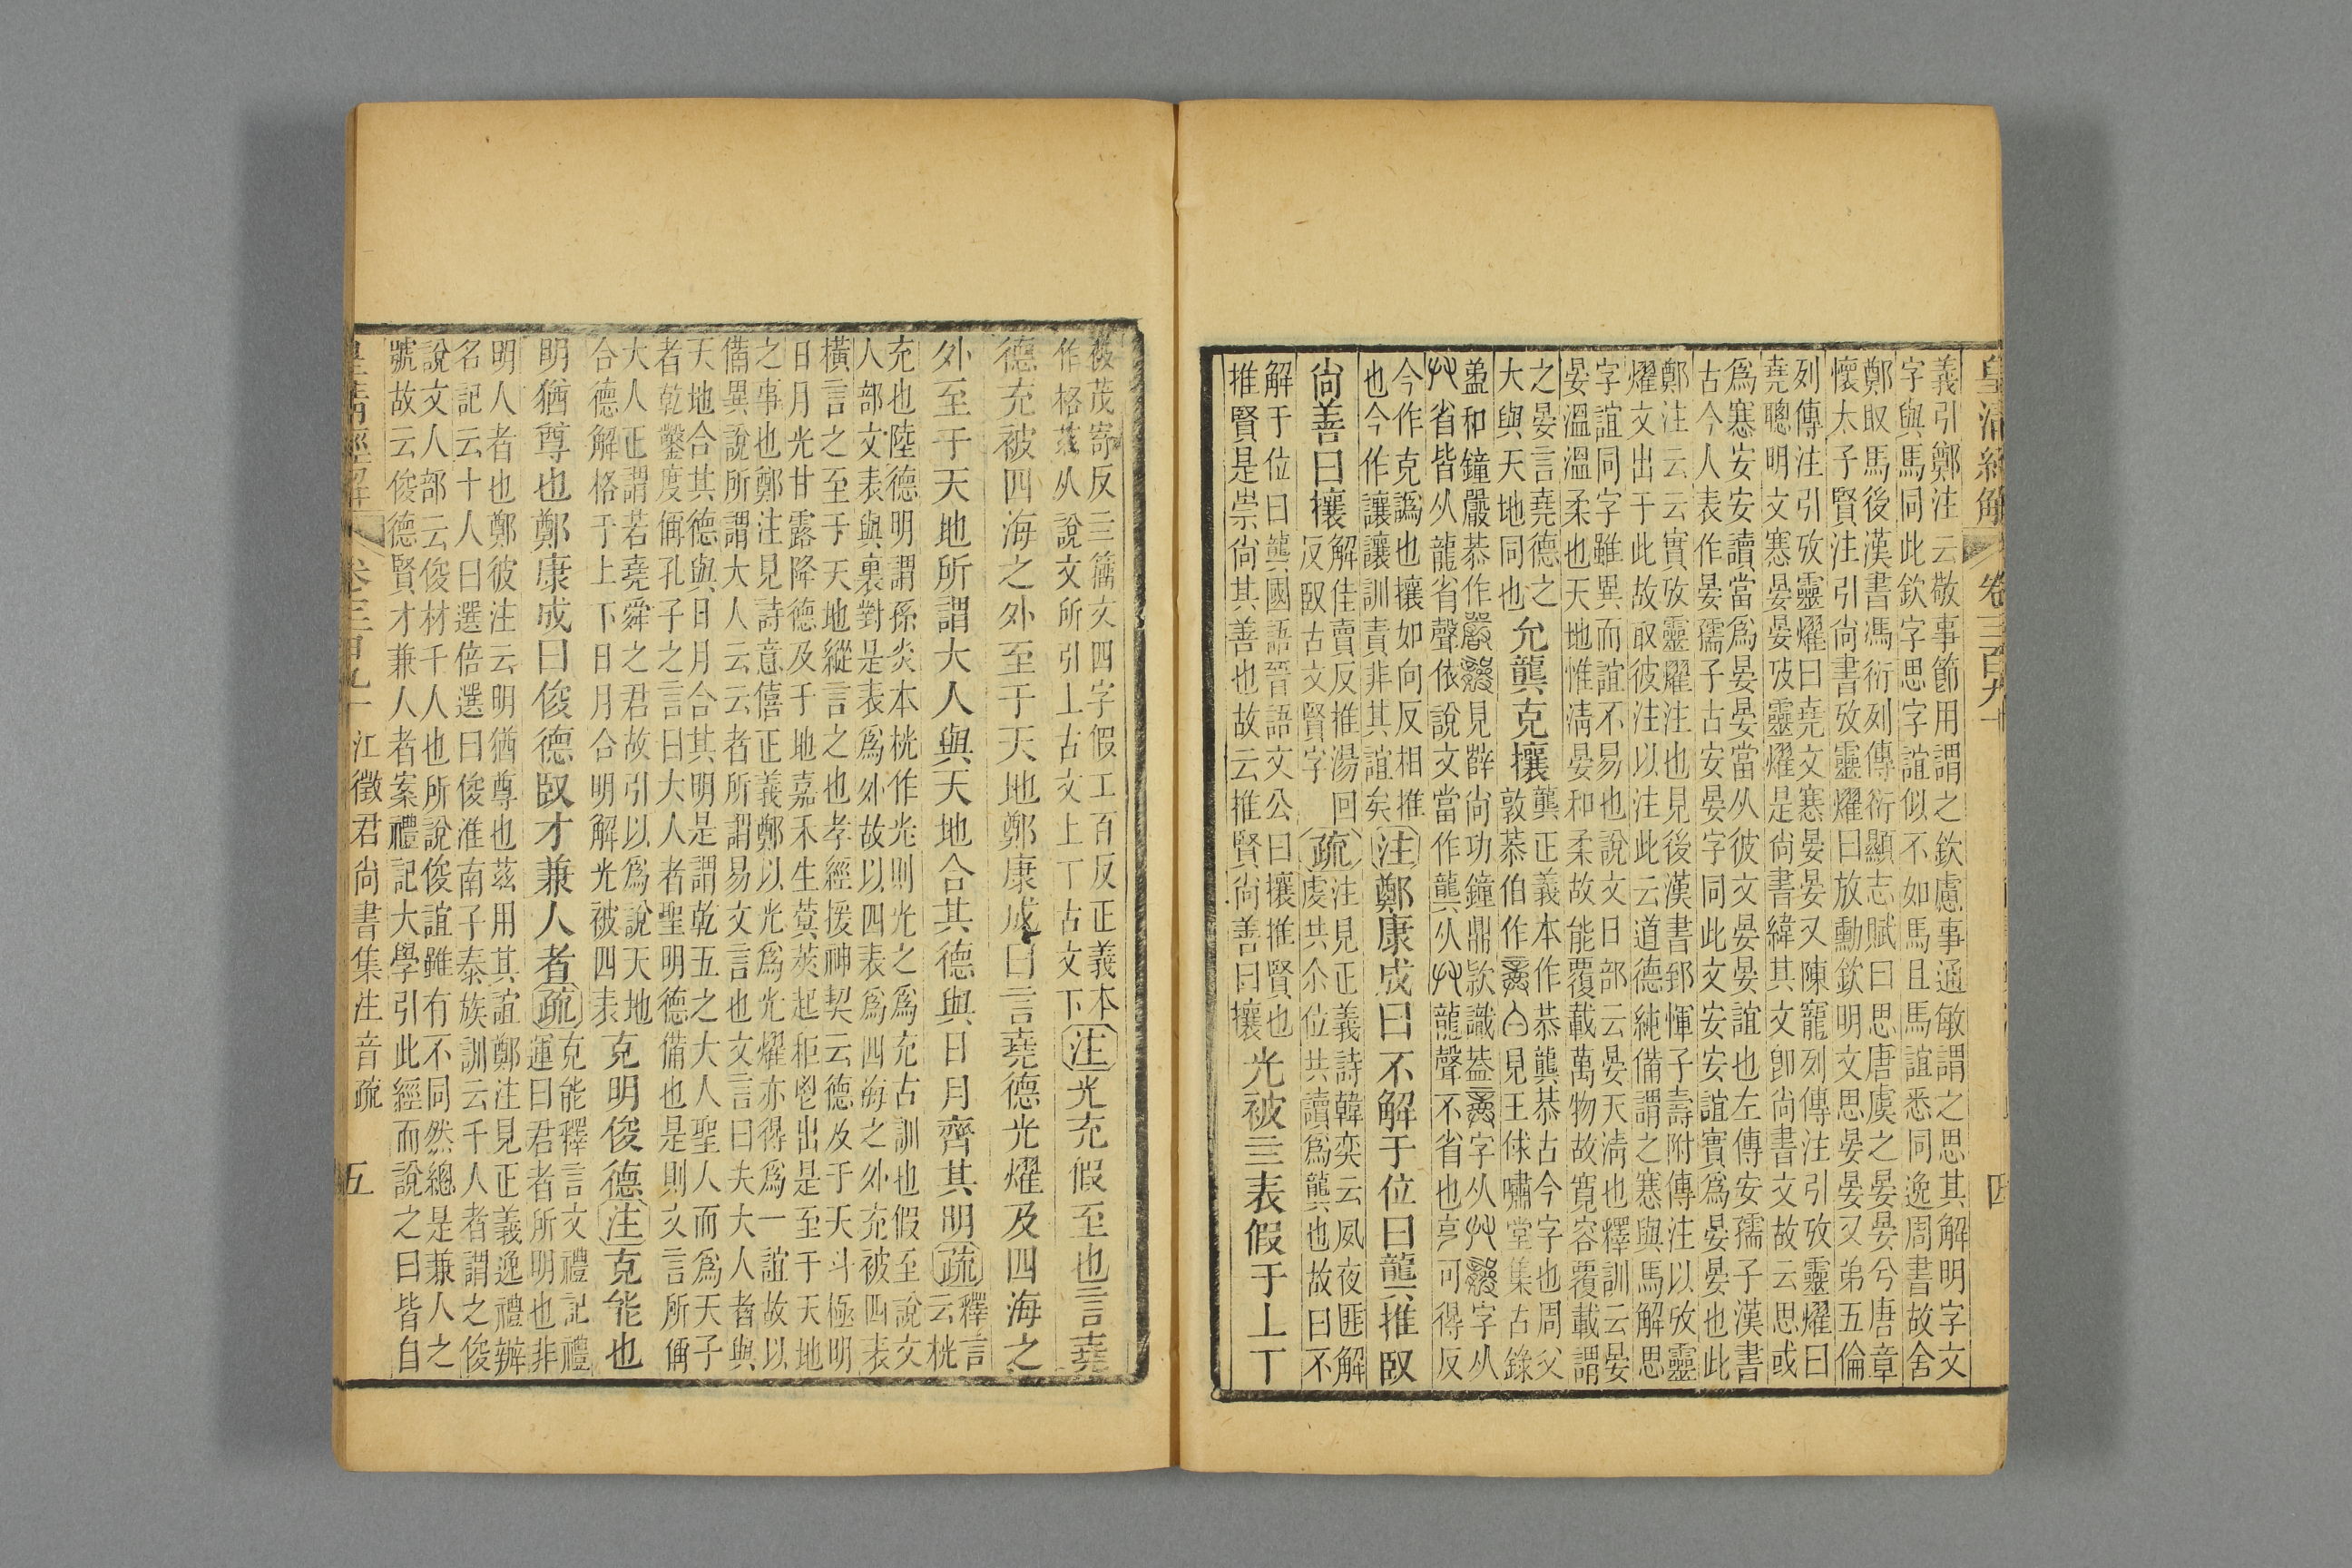 皇淸經解 卷三百九十 四
義引鄭注云敬事節用謂之欽慮事通敏謂之思其解明字文
字與馬同此欽字思字誼似不如馬且馬誼悉同逸周書故舍
鄭取馬後漢書馮衍列傳衍顯志賦曰思唐虞之晏晏兮唐章
懷太子賢注引尙書攷靈燿曰放勳欽明文思晏晏又弟五倫
列傳注引攷靈燿曰堯文㥶晏晏又陳寵列傳注引攷靈燿曰
堯聰明文㥶晏晏攷靈燿是尙書緯其文卽尙書文故云思或
爲㥶安安讀當爲晏晏當从彼文晏晏誼也左傳安孺子漢書
古今人表作晏孺子古安晏字同此文安安誼實爲晏晏也此
鄭注云云實攷靈燿注也見後漢書郅惲子壽附傳注以攷靈
燿文出于此故取彼注以注此云道德純備謂之㥶與馬解思
字誼同字雖異而誼不易也說文日部云晏天淸也釋訓云晏
晏溫溫柔也天地惟淸晏和柔故能覆載萬物故寬容覆載謂
之晏言堯德之
大與天地同也
允龔克攘
龔正義本作恭龔恭古今字也周父
敦恭伯作見王俅嘯堂集古錄
盄和鐘嚴恭作見薛尙功鐘鼎款識葢字从字从
省皆从龍省聲依說文當作龔从龍聲不省也亯可得反
今作克譌也攘如向反相推
也今作讓讓訓責非其誼矣
注鄭康成曰不解于位曰龔推臤
尙善曰攘
解佳賣反推湯回
反臤古文賢字
疏
注見正義詩韓奕云夙夜匪解
虔共尒位共讀爲龔也故曰不
解于位曰龔國語晉語文公曰攘推賢也
推賢是崇尙其善也故云推賢尙善曰攘
光被亖表假于丄丅
被茂寄反亖籒文四字假工百反正義本
作格茲从說文所引丄古文上丅古文下
注光充假至也言堯
德充被四海之外至于天地鄭康成曰言堯德光燿及四海之
外至于天地所謂大人與天地合其德與日月齊其明疏
釋言
云桄
充也陸德明謂孫炎本桄作光則光之爲充古訓也假至說文
人部文表與裏對是表爲外故以四表爲四海之外充被四表
橫言之至于天地縱言之也孝經援神契云德及于天斗極明
日月光甘露降德及于地嘉禾生蓂莢起秬鬯出是至于天地
之事也鄭注見詩意僖正義鄭以光爲光燿亦得爲一誼故以
備異說所謂大人云云者所謂易文言也文言曰夫大人者與
天地合其德與日月合其明是謂乾五之大人聖人而爲天子
者乾鑿度偁孔子之言曰大人者聖明德備也是則文言所偁
大人正謂若堯舜之君故引以爲說天地
合德解格于上下日月合明解光被四表
克明俊德注克能也
明猶尊也鄭康成曰俊德臤才兼人者疏
克能釋言文禮記禮
運曰君者所明也非
明人者也鄭彼注云明猶尊也茲用其誼鄭注見正義逸禮辦
名記云十人曰選倍選曰俊淮南子泰族訓云千人者謂之俊
說文人部云俊材千人也所說俊誼雖有不同然總是兼人之
號故云俊德賢才兼人者案禮記大學引此經而說之曰皆自
皇淸經解 卷三百九十 江徵君尙書集注音疏 五